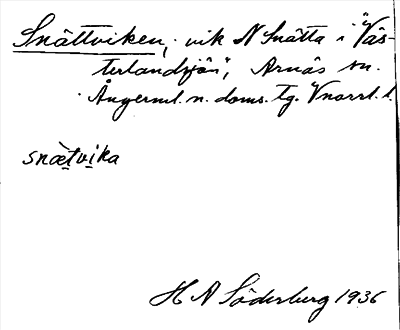 Snättviken, vik N Snätta i "Väs-
terlandsjön", Arnäs sn.
Ångerml. n. doms. tg. Vnorrl. l.
snætvika
H A Söderberg 1936